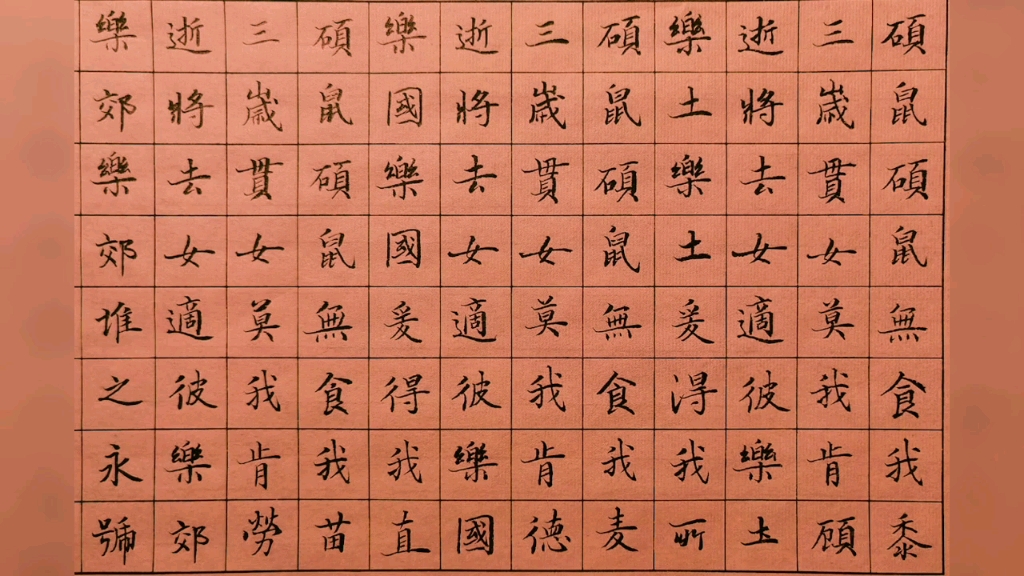 碩鼠碩鼠無食我黍
三歲貫女莫我肯顧
逝將去女適彼樂土
樂土樂土爰得我所
碩鼠碩鼠無食我麦
三歲貫女莫我肯德
逝將去女適彼樂國
樂國樂國爰得我直
碩鼠碩鼠無食我苗
三歲貫女莫我肯勞
逝將去女適彼樂郊
樂郊樂郊堆之永號